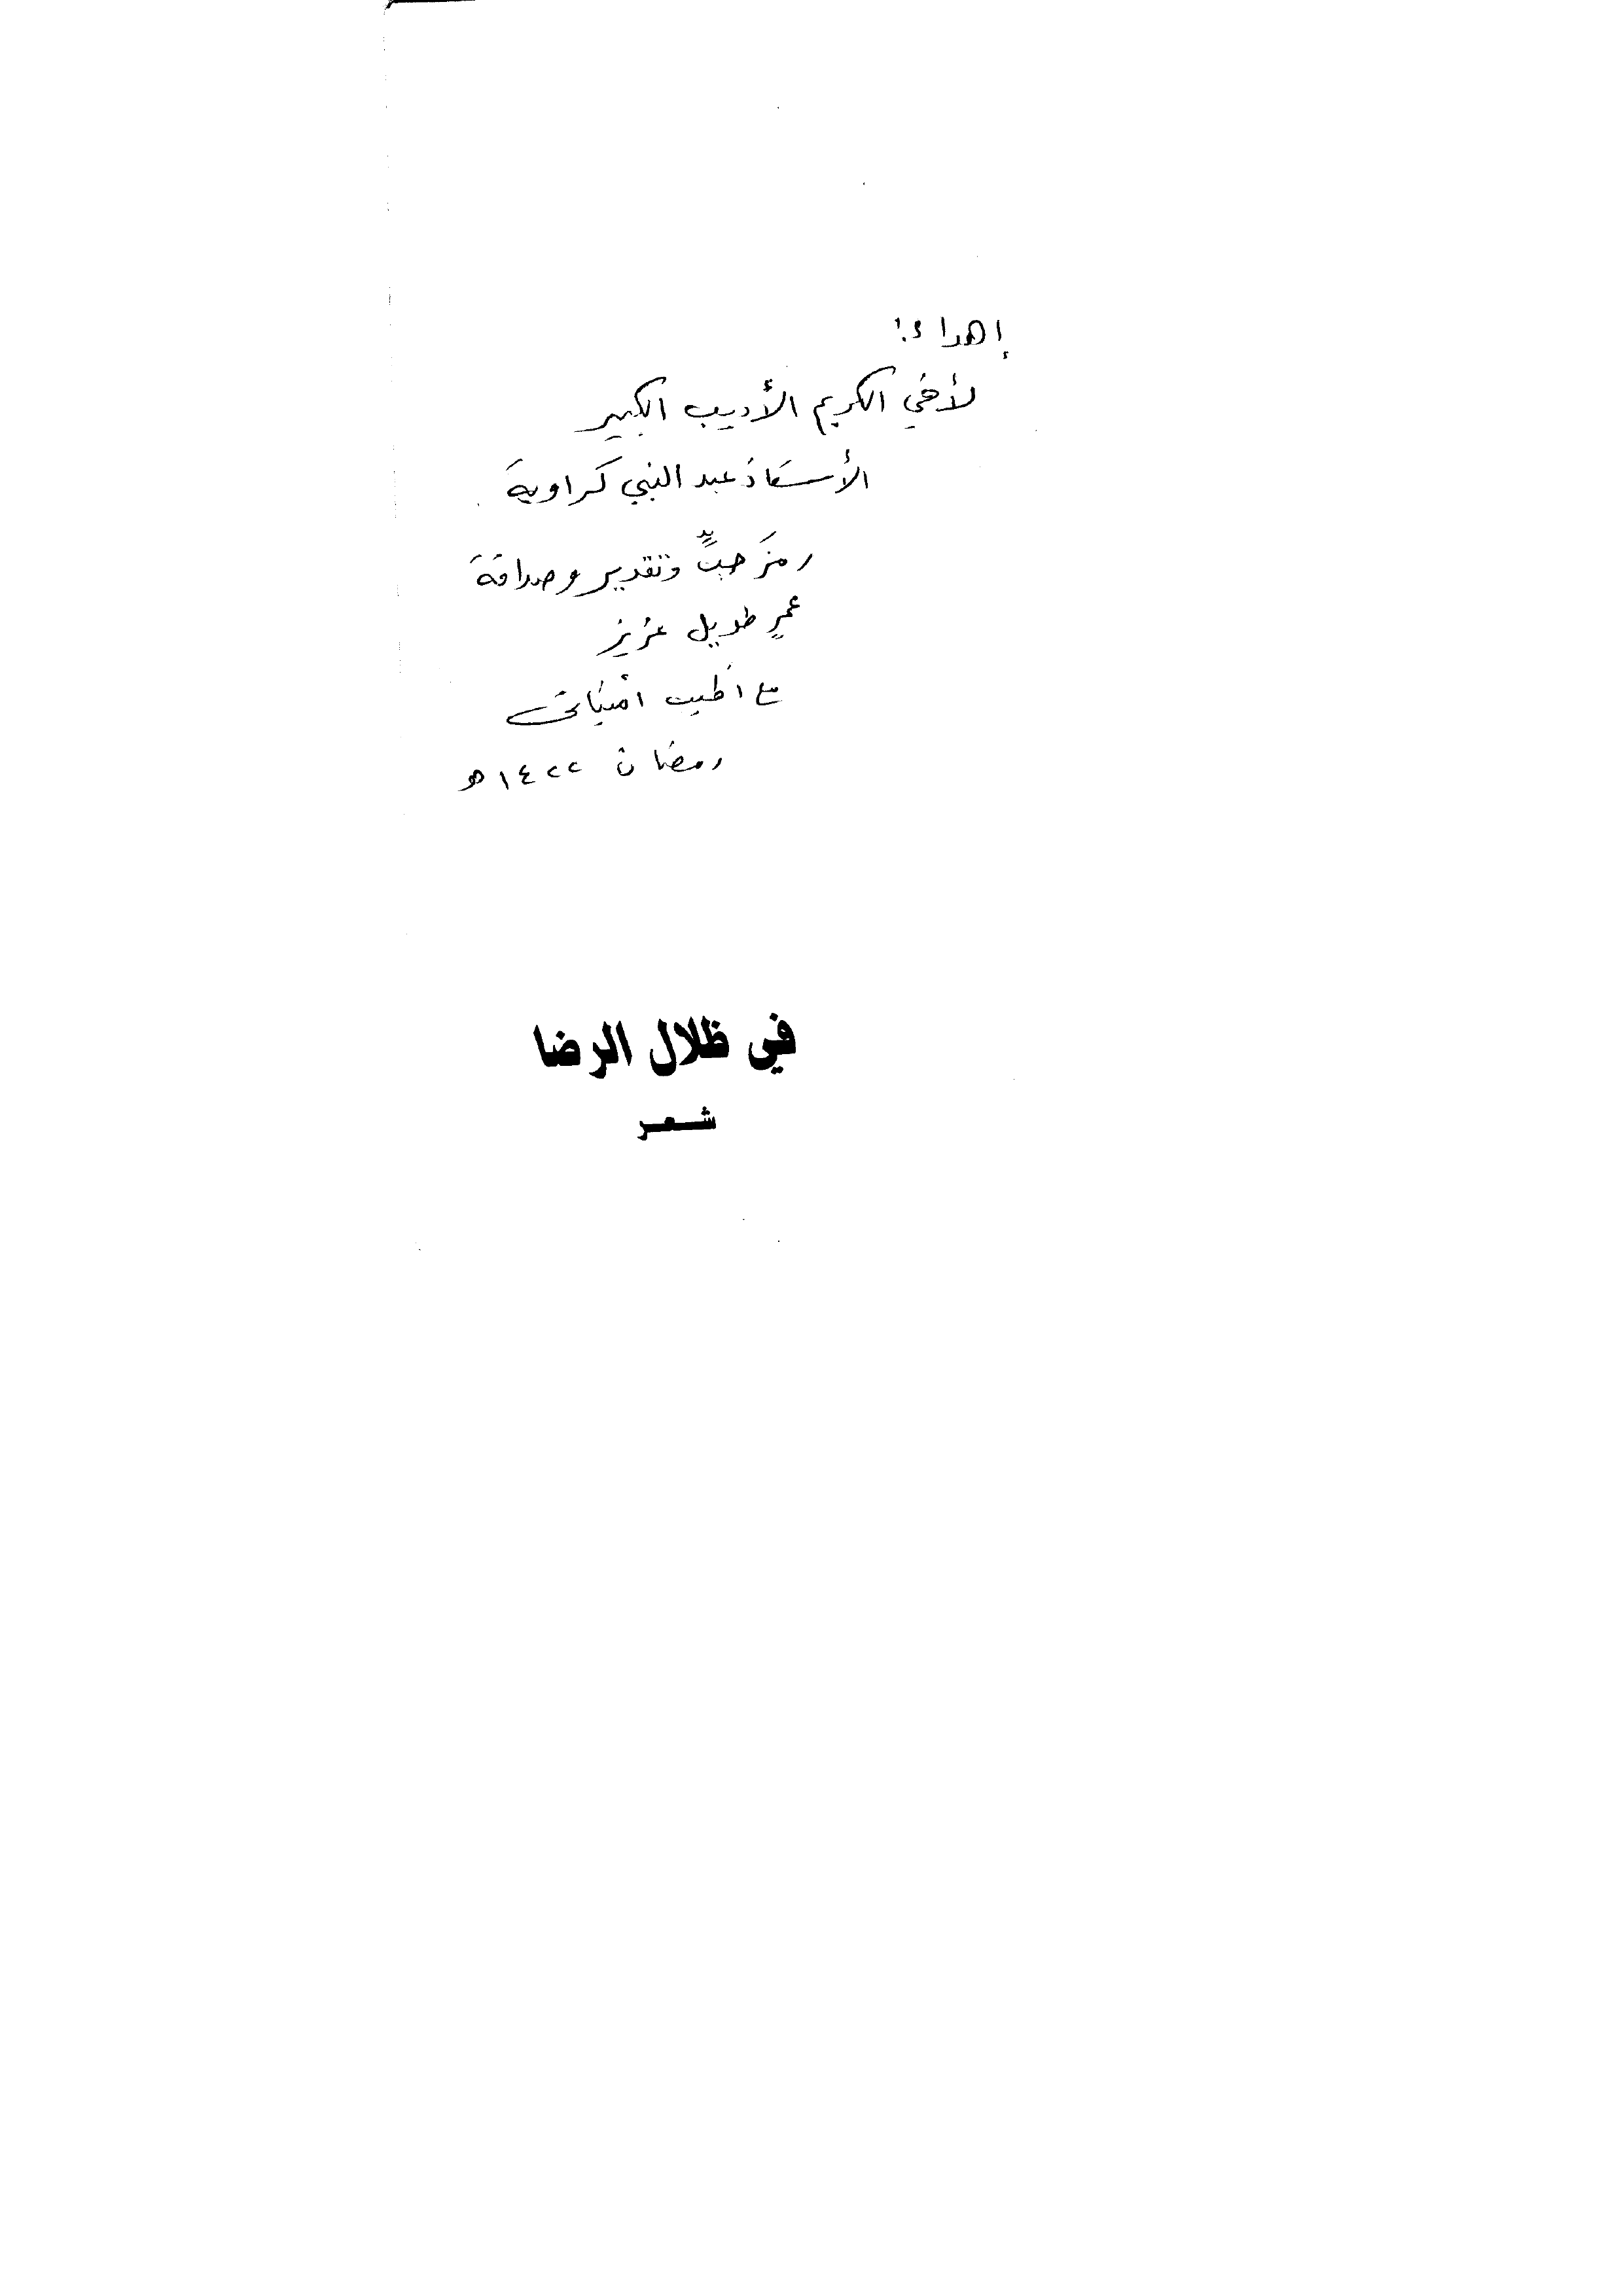 إهداء:
لأخي الكريم الأديب الكبير
الأستاذ عبد النبي كراوية
رمزَ حبٍّ وتقدير وصداقة
عمرٍ طويل عزيز
مع أطيب أمنياتي
رمضان ١٤٢٢هـ
في ظلال الرضا
شعر